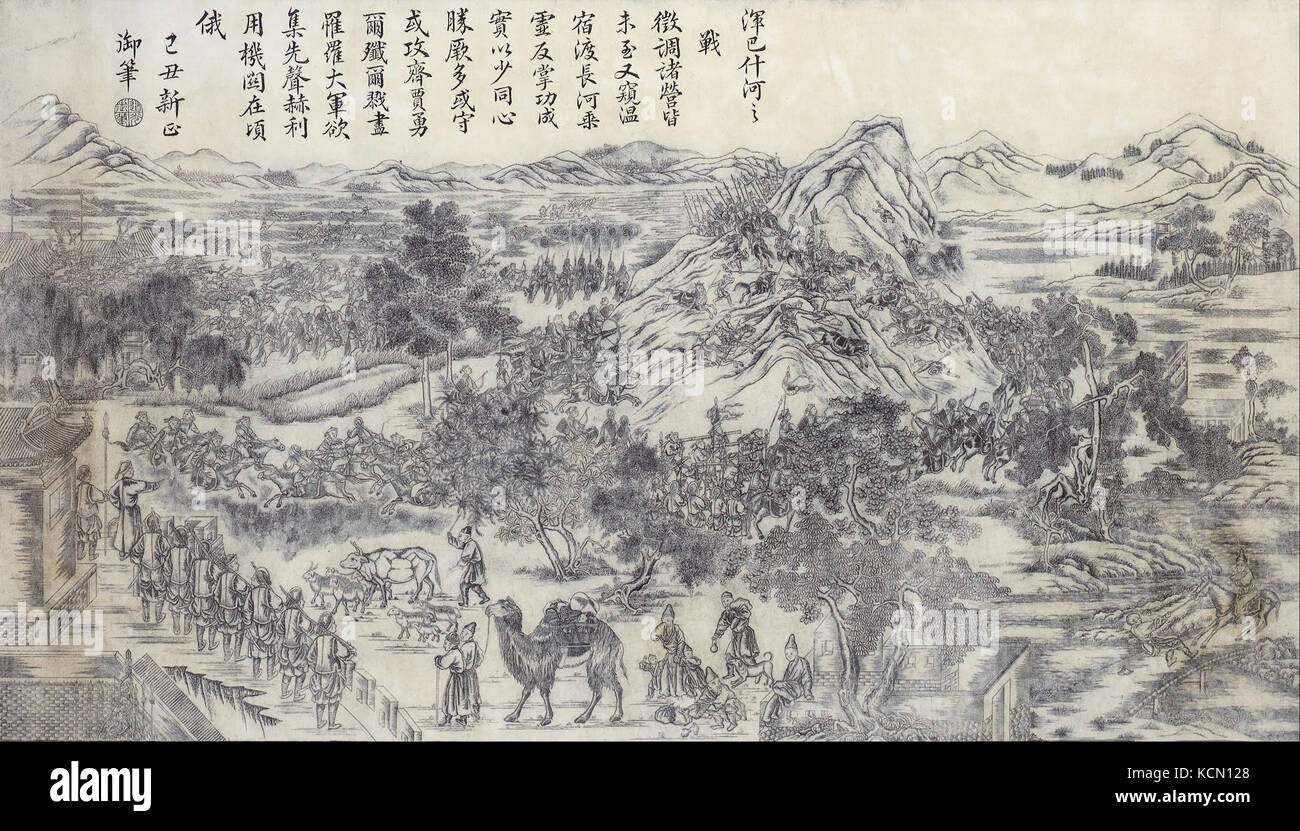 渾巴什河之
戰
徵調諸營皆
未至又窺温
宿渡長河乘
靈反掌功成
實以少同心
勝厥多或守
或攻齊賈勇
爾殲爾戮盡
罹羅大軍欲
集先聲赫利
用機關在頃
俄
己丑新正
御筆
alamy stock photo
alamy
KCN128
www.alamy.com